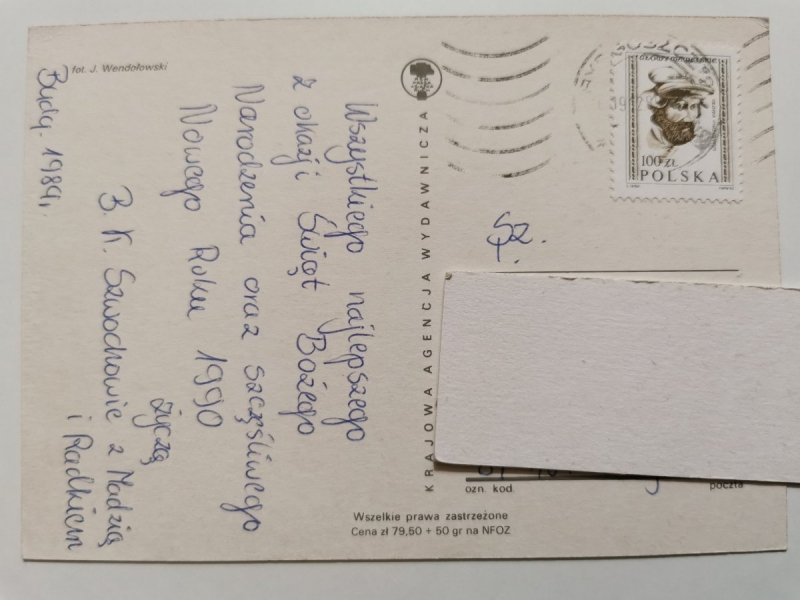 fot. J. Wendołowski
Bydg. 1989r.
Wszystkiego najlepszego
z okazji Świąt Bożego
Narodzenia oraz szczęśliwego
Nowego Roku 1990
życzą
B. K. Szwochowie z Madzią
i Radkiem
KRAJOWA AGENCJA WYDAWNICZA
100 zł
POLSKA
Sz.
ozn. kod.
poczta
Wszelkie prawa zastrzeżone
Cena zł 79,50 + 50 gr na NFOZ